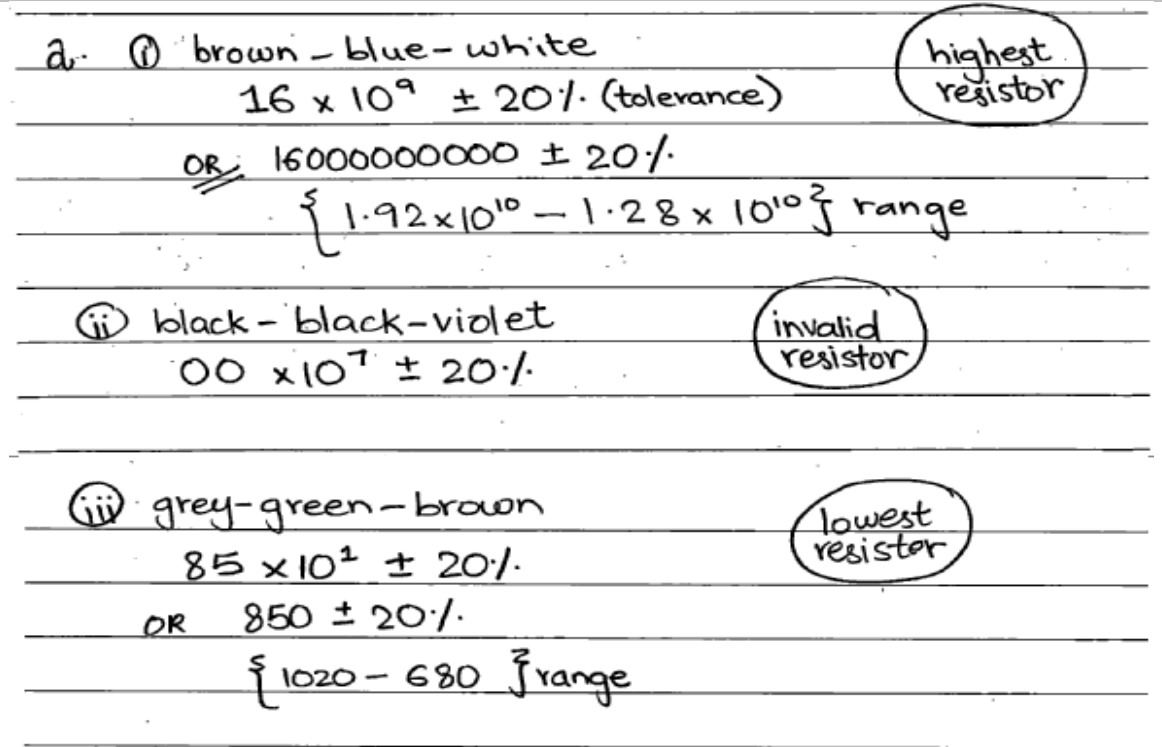 a. (i) brown - blue - white
highest
resistor
16 x 10⁹ ± 20% (tolerance)
OR 16000000000 ± 20%
{1.92x10¹⁰ - 1.28 x 10¹⁰} range
(ii) black - black - violet
invalid
resistor
00 x10⁷ ± 20%
(iii) grey-green-brown
lowest
resistor
85 x10¹ ± 20%
OR 850 ± 20%
{1020 - 680} range